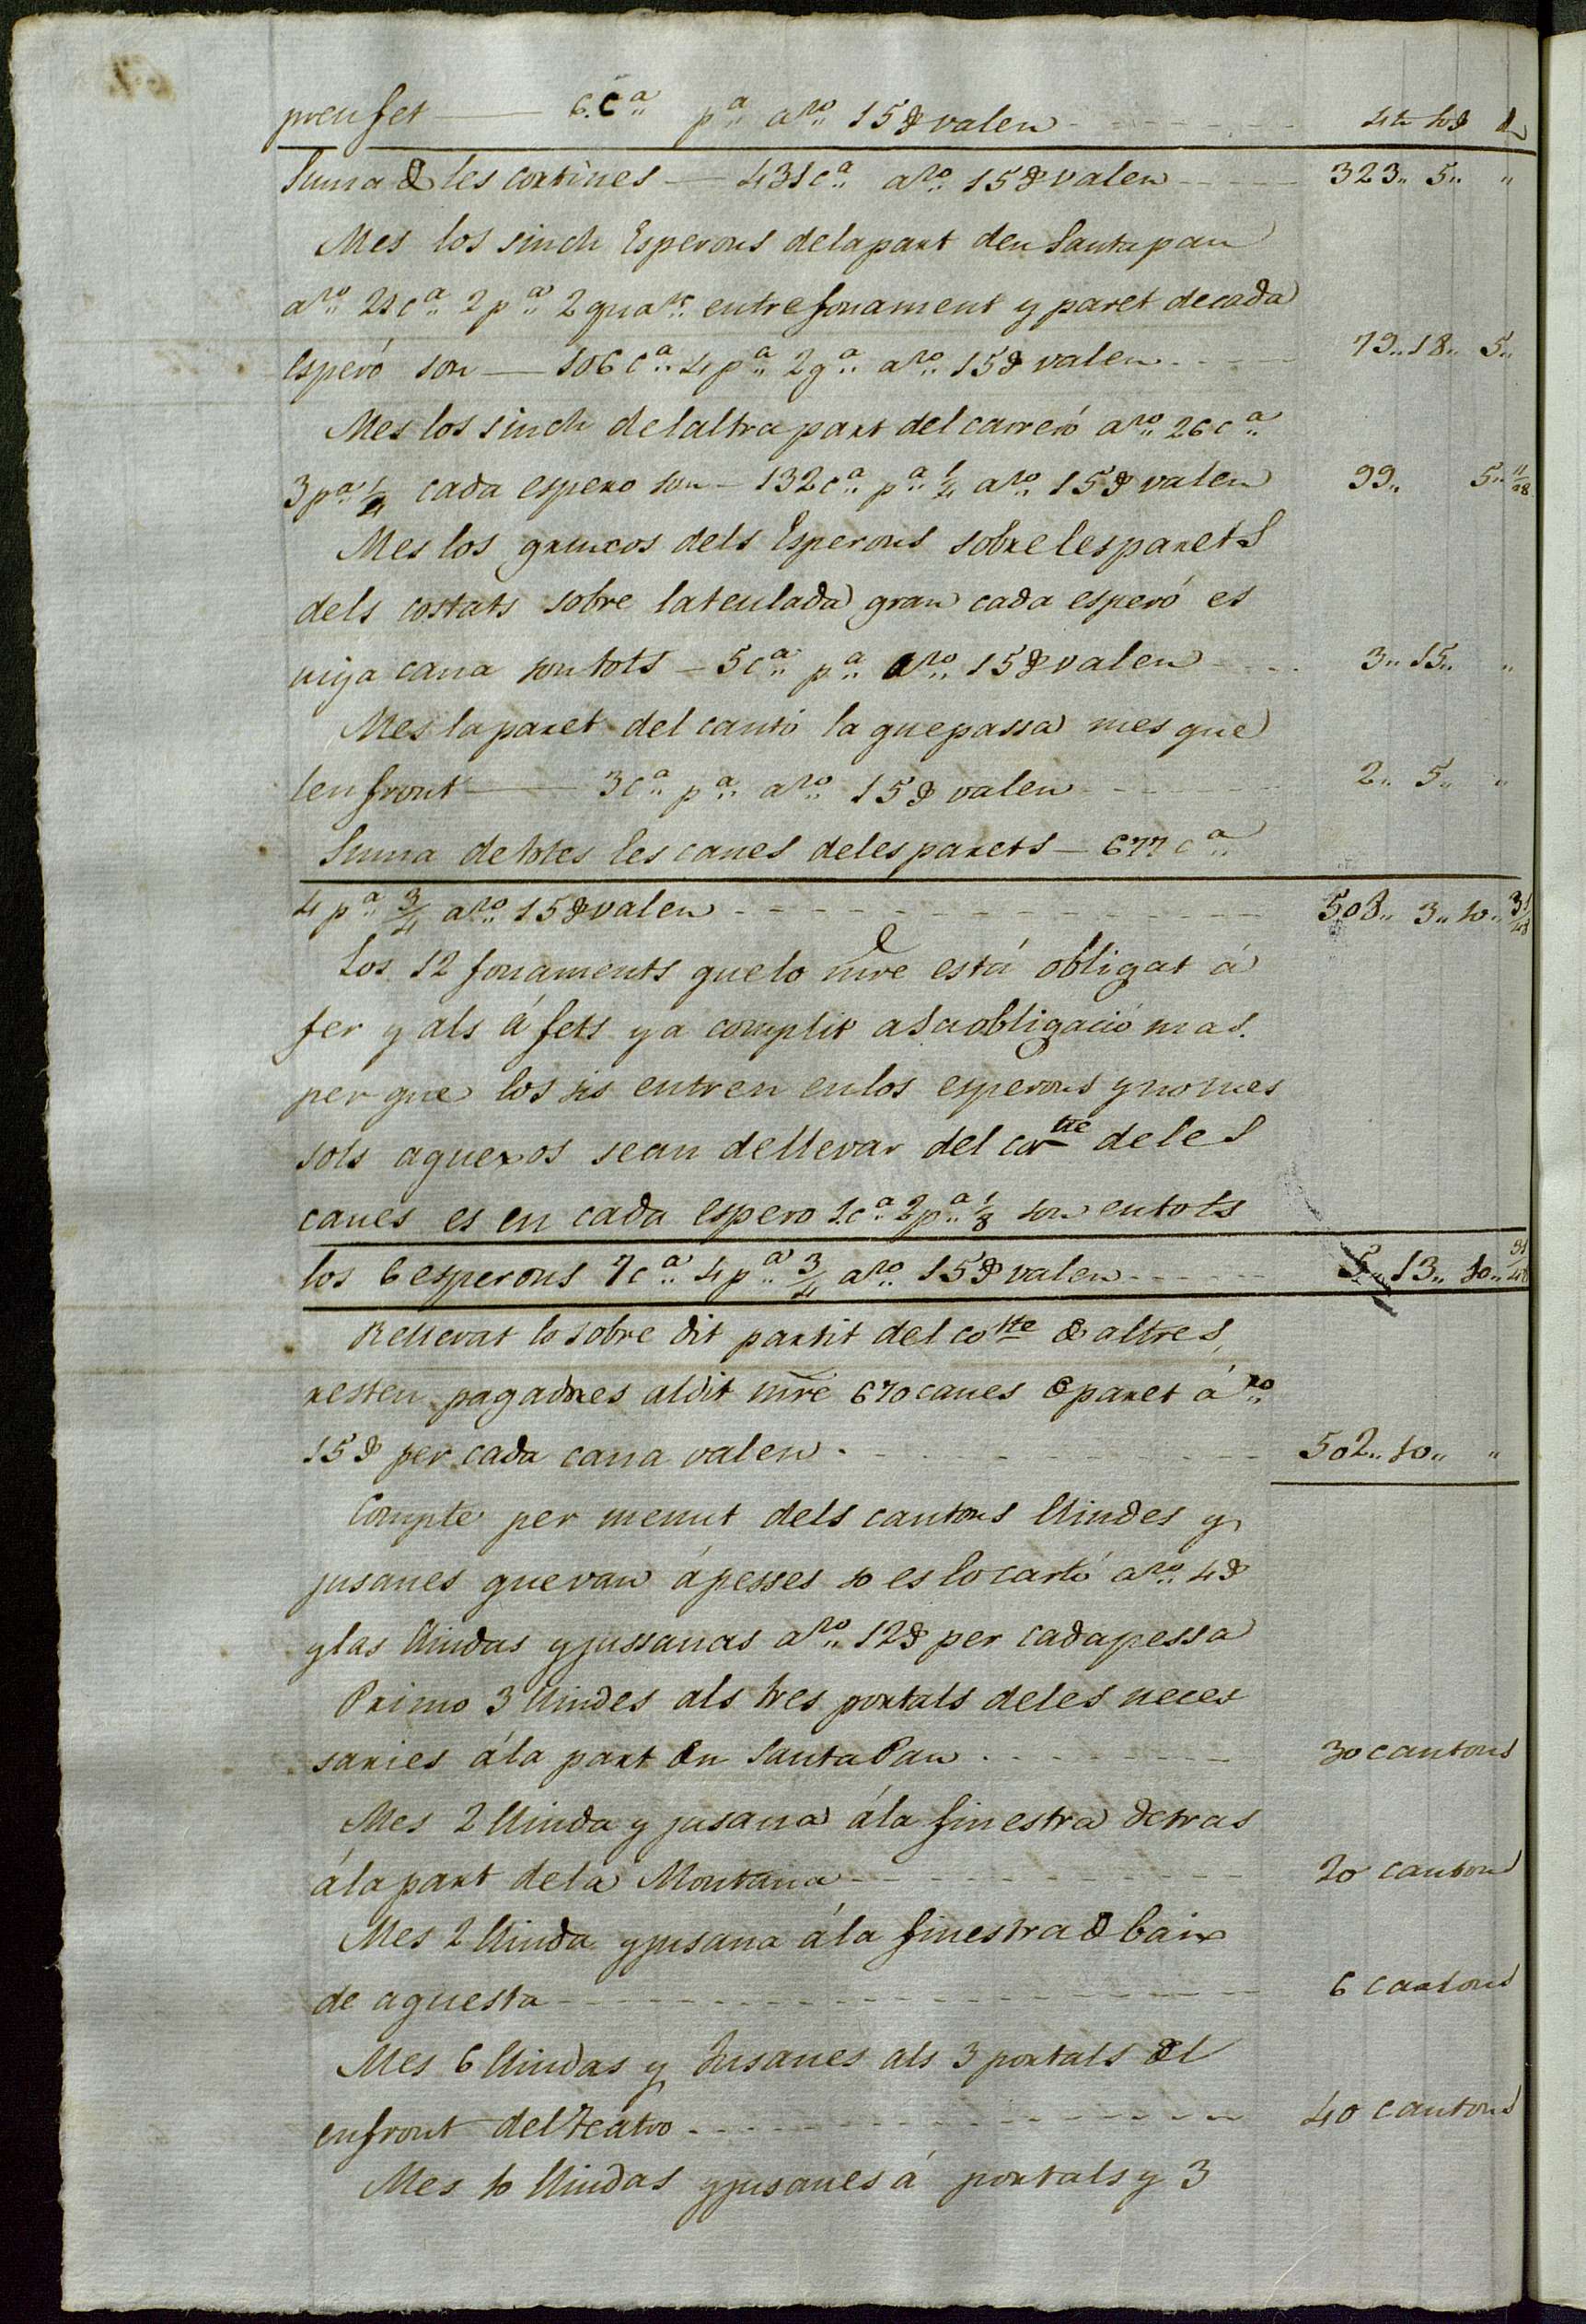 preu fet — 6.cª pª a rº 15 § valen - - - 4 ₶ 10 § ₰
Suma de les cortines — 431 cª a rº 15 § valen - - - 323,, 5,, ,,
Mes los sinch Esperons dela part den Santapau
a rº 21 cª 2 pª 2 quarts entre fonament y paret de cada
esperó son — 106 cª 4 pª 2 qª a rº 15 § valen - - - 79,, 18,, 5,,
Mes los sinch delaltra part del carreró a rº 26 cª
3 pª 1/4 cada espero son — 132 cª pª 1/4 a rº 15 § valen 99,, 5,, 11/48
Mes los gruxos dels Esperons sobre les parets
dels costats sobre lateulada gran cada esperó es
mija cana son tots — 5 cª pª a rº 15 § valen - - - 3,, 15,, ,,
Mes la paret del cantó la que passa mes que
lenfront — 3 cª pª a rº 15 § valen - - - 2,, 5,, ,,
Suma de totes les canes deles parets — 677 cª
4 pª 3/4 a rº 15 § valen - - - 508,, 3,, 10,, 31/48
Los 12 fonaments que lo mre está obligat á
fer y als á fets y a complit a Sa obligació mas.
per que los sis entren en los esperons y no mes
sols aquexos sean dellevar del cotte de les
canes es en cada espero 1 cª 2 pª 1/8 son en tots
los 6 esperons 7 cª 4 pª 3/4 a rº 15 § valen - - - 5,, 13,, 10,, 31/48
Rellevat lo sobre dit partit del cotte de altres,
resten pagadores aldit mre 670 canes de paret á rº
15 § per cada cana valen - - - 502,, 10,, ,,
Compte per menut dels cantons llindes y
jusanes que van á pesses so es lo cartó a rº 4 §
y las llindas y jussanas a rº 12 § per cada pessa
Primo 3 llindes als tres portals deles neces
saries á la part den Santa Pau - - - 30 cantons
Mes 2 llinda y jusana á la finestra detras
á la part dela Montana - - - 20 cantons
Mes 2 llinda y jusana á la finestra de baix
de aquesta - - - 6 cantons
Mes 6 llindas y Jusanes als 3 portals del
enfront del Teatro - - - 40 cantons
Mes 10 llindas y jusanes á portals y 3